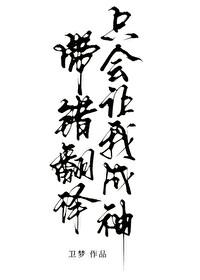 只会让我成神
错翻译
卫梦 作品